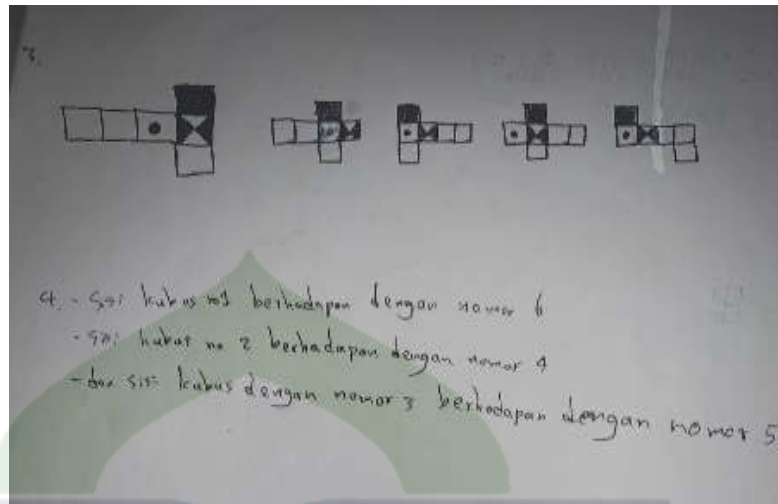 3.
4. - Sisi kubus no1 berhadapan dengan nomor 6
- sisi kubus no 2 berhadapan dengan nomor 4
- dan sisi kubus dengan nomor 3 berhadapan dengan nomor 5